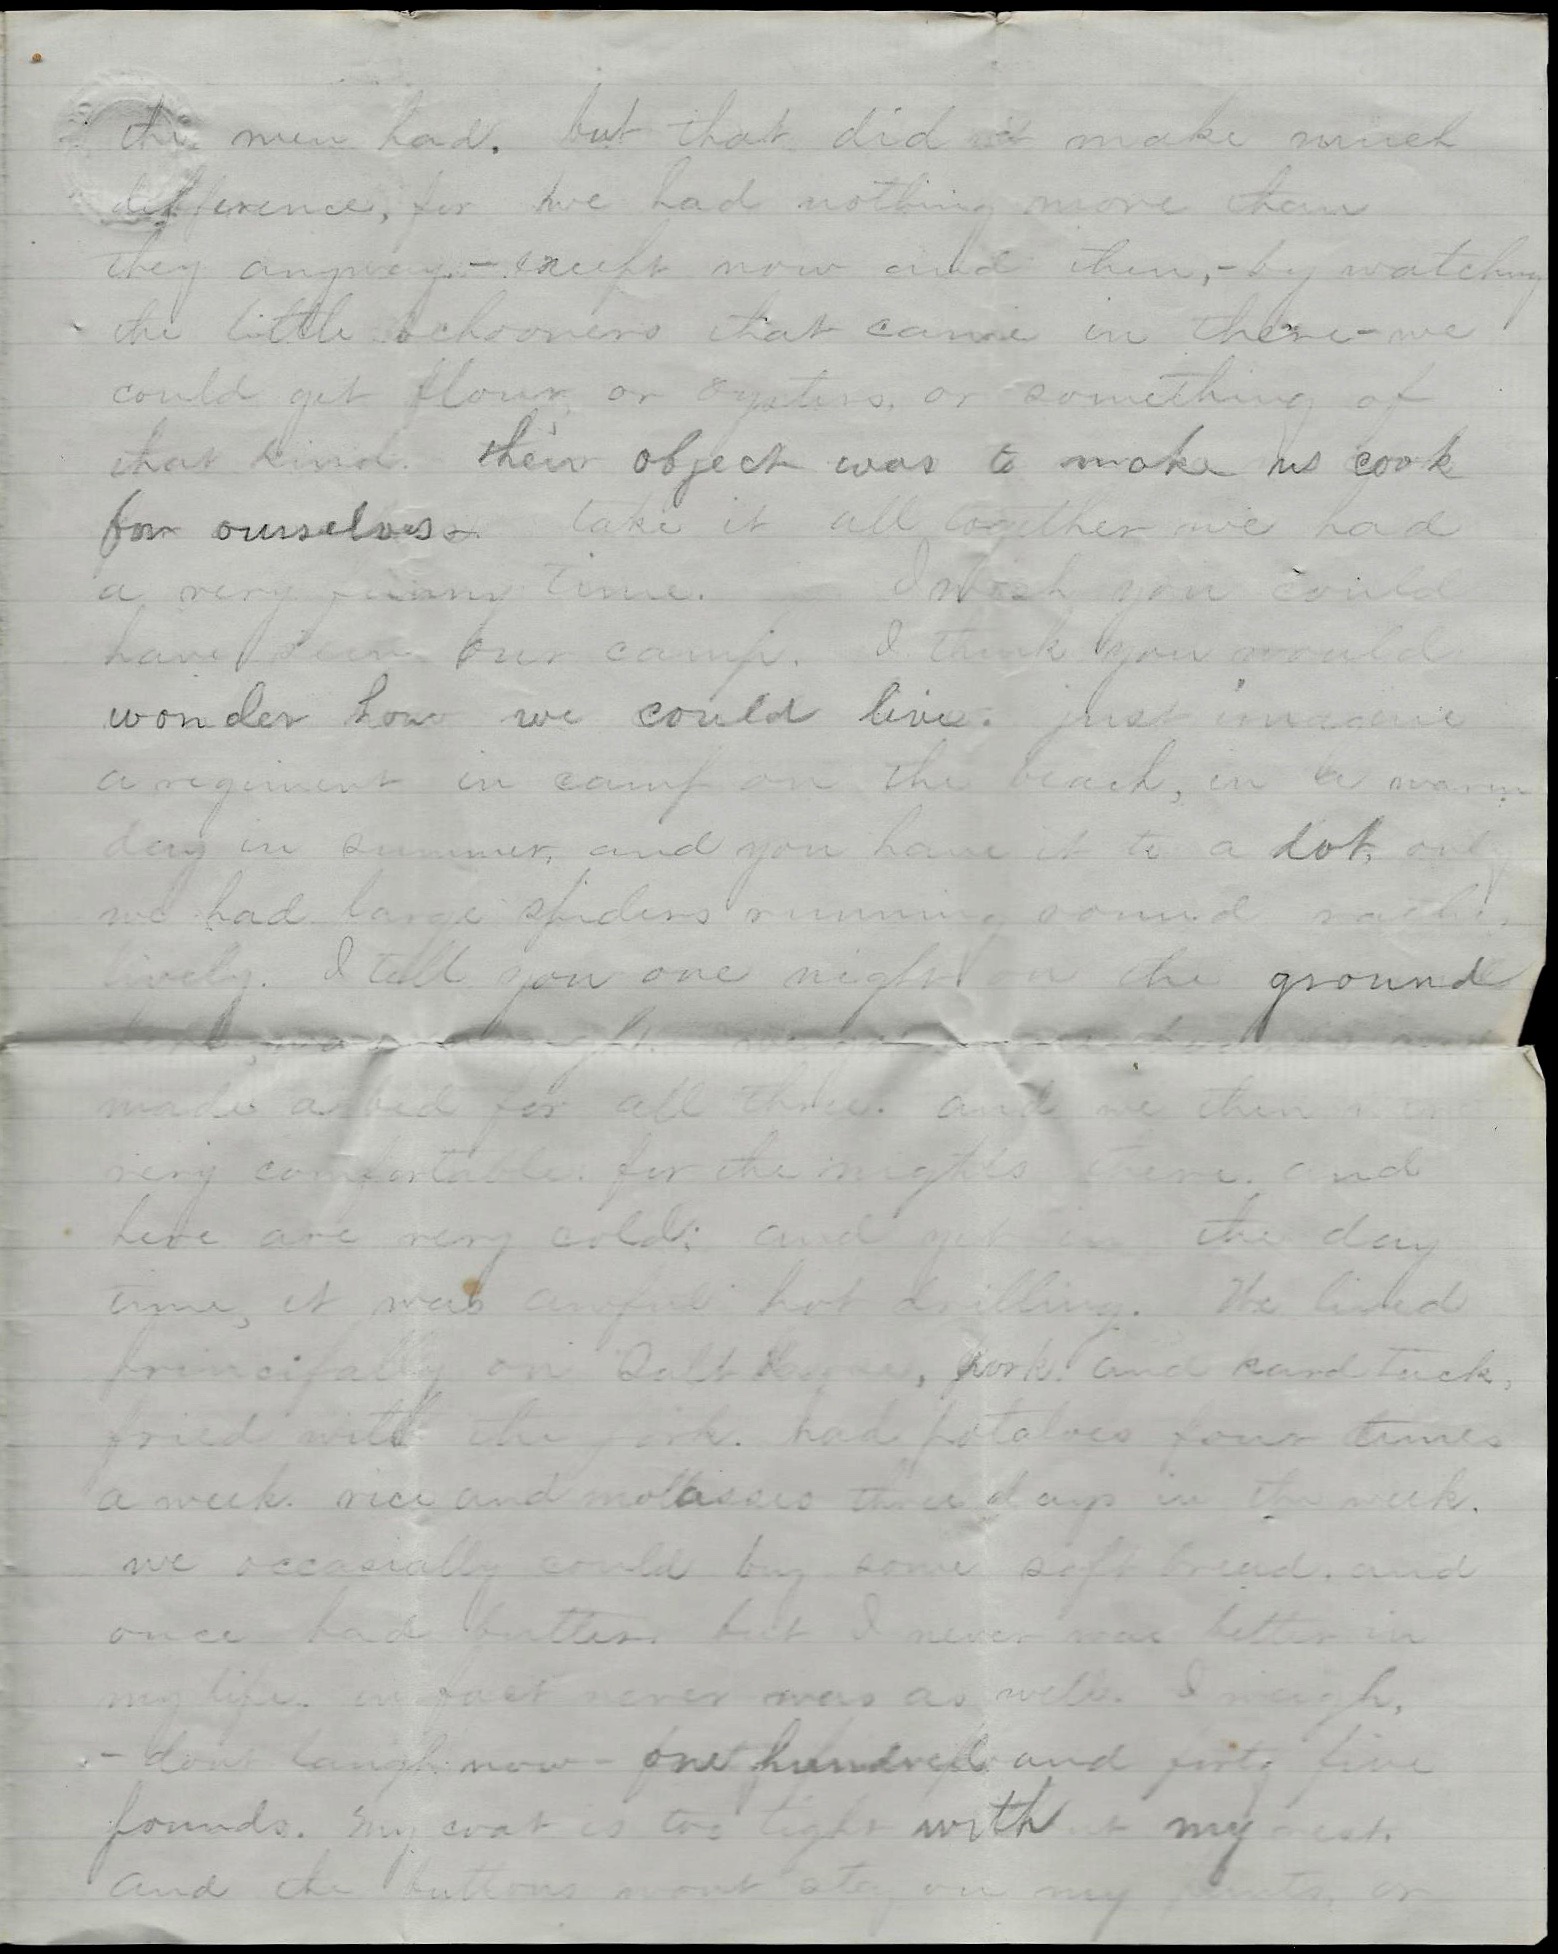 the men had. but that did nt make much
difference, for we had nothing more than
they anyway - except now and then, - by watching
the little schooners that came in there - we
could get flour, or oysters, or something of
that kind. their object was to make us cook
for ourselves. take it all together we had
a very funny time. I wish you could
have seen our camp. I think you would
wonder how we could live. just imagine
a regiment in camp on the beach, in a warm
day in summer, and you have it to a dot, only
we had large spiders running round rather
lively. I tell you one night on the ground
made a bed for all three. and we then were
very comfortable. for the nights there. and
here are very cold; and yet in the day
time, it was awful hot drilling. We lived
principally on Salt pork. and hard tack,
fried with the pork. had potatoes four times
a week. rice and molasses three days in the week.
we occasially could buy some soft bread. and
once had butter. but I never was better in
my life. in fact never was as well. I weigh,
- dont laugh now - one hundred and forty five
pounds. My coat is too tight without my vest.
and the buttons wont stay on my pants, or